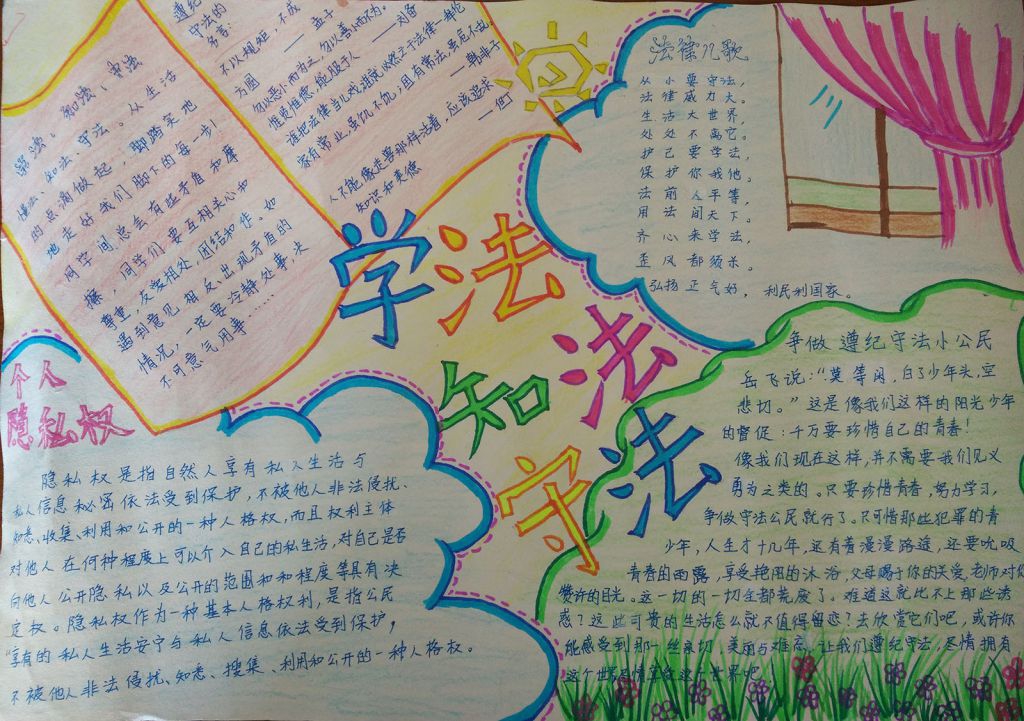 学法、知法、守法
懂法、知法、守法。从生活
的点滴做起，脚踏实地
地走好我们脚下的每一步！
同学间总会有些矛盾和摩
擦，同学们要互相关心和
尊重，友爱相处，团结和作。如
遇到意见相反、出现矛盾的
情况，一定要冷静处事，决
不可意气用事……
遵纪
守法的
名言：
不以规矩，不成
方圆 —— 孟子
勿以恶小而为之，勿以善小而不为。
惟贤惟德，能服于人 —— 刘备
谁把法律当儿戏，谁就必然亡于法律 —— 拜伦
家有常业，虽饥不饿，国有常法，虽危不乱
—— 韩非子
人不能像走兽那样活着，应该追求
知识和美德 —— 但丁
法律儿歌
从小要守法，
法律威力大。
生活大世界，
处处不离它。
护己要学法，
保护你我他。
法前人平等，
用法间天下。
齐心来学法，
歪风都须杀。
弘扬正气好，利民利国家。
学法
知法
守法
个人
隐私权
隐私权是指自然人享有私人生活与
私人信息秘密依法受到保护，不被他人非法侵扰、
知悉、收集、利用和公开的一种人格权，而且权利主体
对他人在何种程度上可以介入自己的私生活，对自己是否
向他人公开隐私以及公开的范围和和程度等具有决
定权。隐私权作为一种基本人格权利，是指公民
享有的私人生活安宁与私人信息依法受到保护，
不被他人非法侵扰、知悉、搜集、利用和公开的一种人格权。
争做遵纪守法小公民
岳飞说：“莫等闲，白了少年头，空
悲切。”这是像我们这样的阳光少年
的督促：千万要珍惜自己的青春！
像我们现在这样，并不需要我们见义
勇为之类的。只要珍惜青春，努力学习，
争做守法公民就行了。只可惜那些犯罪的青
少年，人生才十几年，还有着漫漫路途，还要吮吸
青春的雨露，享受艳阳的沐浴，父母赐于你的关爱，老师对你
赞许的目光。这一切的一切全都荒废了。难道这就比不上那些诱
惑？这些可贵的生活怎么就不值得留恋？去欣赏它们吧，或许你
能感受到那一丝亲切、美丽与难忘。让我们遵纪守法，尽情拥有
这个世界，尽情享受这个世界吧！